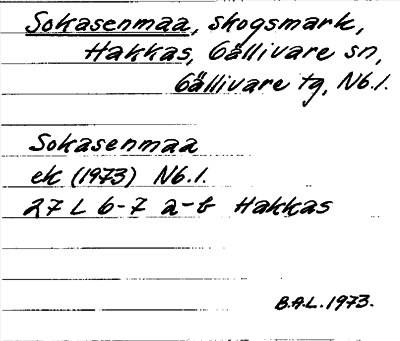 Sokasenmaa, skogsmark,
Hakkas, Gällivare sn,
Gällivare tg, Nb.l.
Sokasenmaa
ek (1973) Nb.l.
27 L 6-7 a-b Hakkas
B.A.L. 1973.